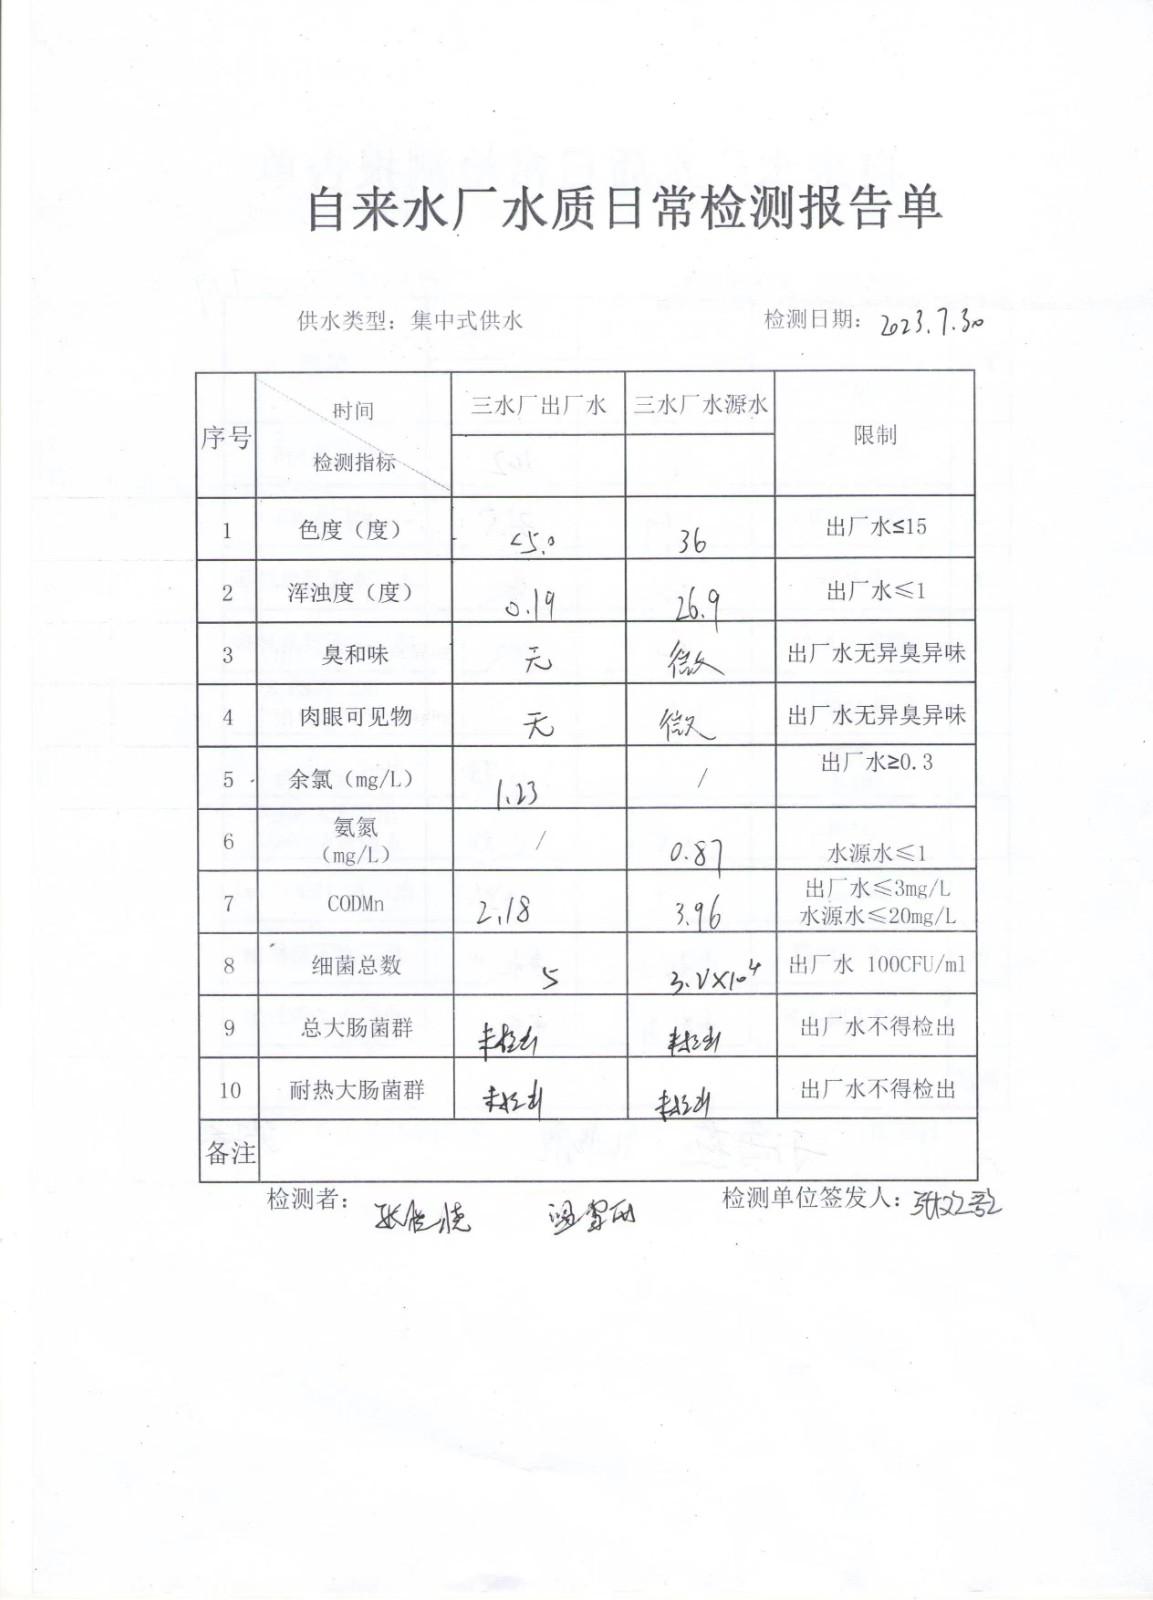 自来水厂水质日常检测报告单
供水类型：集中式供水 检测日期：2023.7.30
序号 时间 检测指标 三水厂出厂水 三水厂水源水 限制
1 色度（度） <5.0 36 出厂水≤15
2 浑浊度（度） 0.19 26.9 出厂水≤1
3 臭和味 无 微 出厂水无异臭异味
4 肉眼可见物 无 微 出厂水无异臭异味
5 余氯（mg/L） 1.23 / 出厂水≥0.3
6 氨氮（mg/L） / 0.87 水源水≤1
7 CODMn 2.18 3.96 出厂水≤3mg/L 水源水≤20mg/L
8 细菌总数 5 出厂水 100CFU/ml
9 总大肠菌群 未检出 未检出 出厂水不得检出
10 耐热大肠菌群 未检出 未检出 出厂水不得检出
备注
检测者： 检测单位签发人：